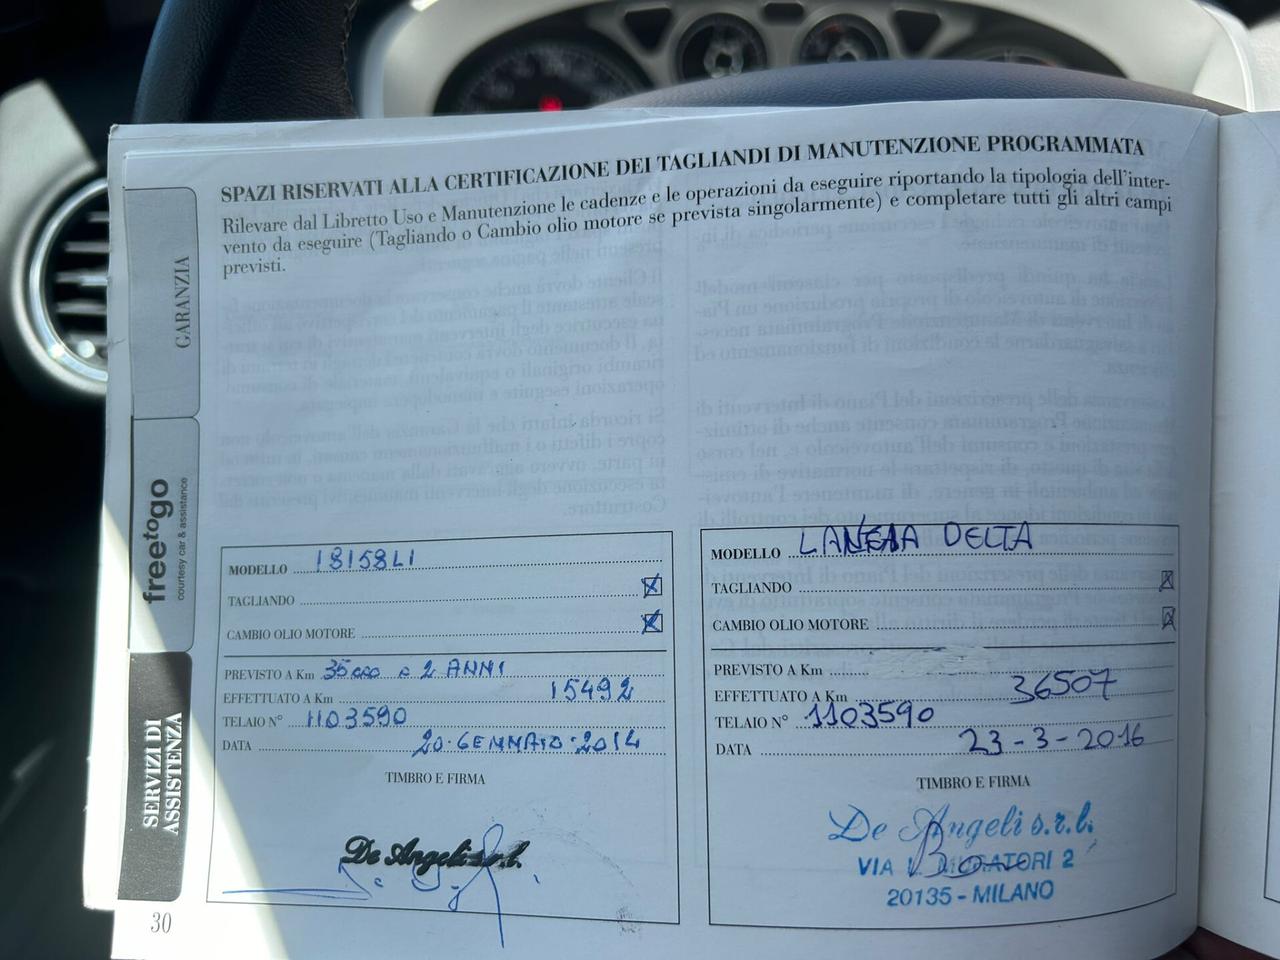 SPAZI RISERVATI ALLA CERTIFICAZIONE DEI TAGLIANDI DI MANUTENZIONE PROGRAMMATA
Rilevare dal Libretto Uso e Manutenzione le cadenze e le operazioni da eseguire riportando la tipologia dell'inter-
vento da eseguire (Tagliando o Cambio olio motore se prevista singolarmente) e completare tutti gli altri campi
previsti.
GARANZIA
freetogo
courtesy car & assistance
SERVIZI DI
ASSISTENZA
MODELLO 18158L1
TAGLIANDO
CAMBIO OLIO MOTORE
PREVISTO A Km 35000 o 2 ANNI
EFFETTUATO A Km 15492
TELAIO N° 1103590
DATA 20·GENNAIO·2014
TIMBRO E FIRMA
De Angeli s.r.l.
MODELLO LANCIA DELTA
TAGLIANDO
CAMBIO OLIO MOTORE
PREVISTO A Km
EFFETTUATO A Km 36507
TELAIO N° 1103590
DATA 23-3-2016
TIMBRO E FIRMA
De Angeli s.r.l.
VIA 2
20135 - MILANO
30